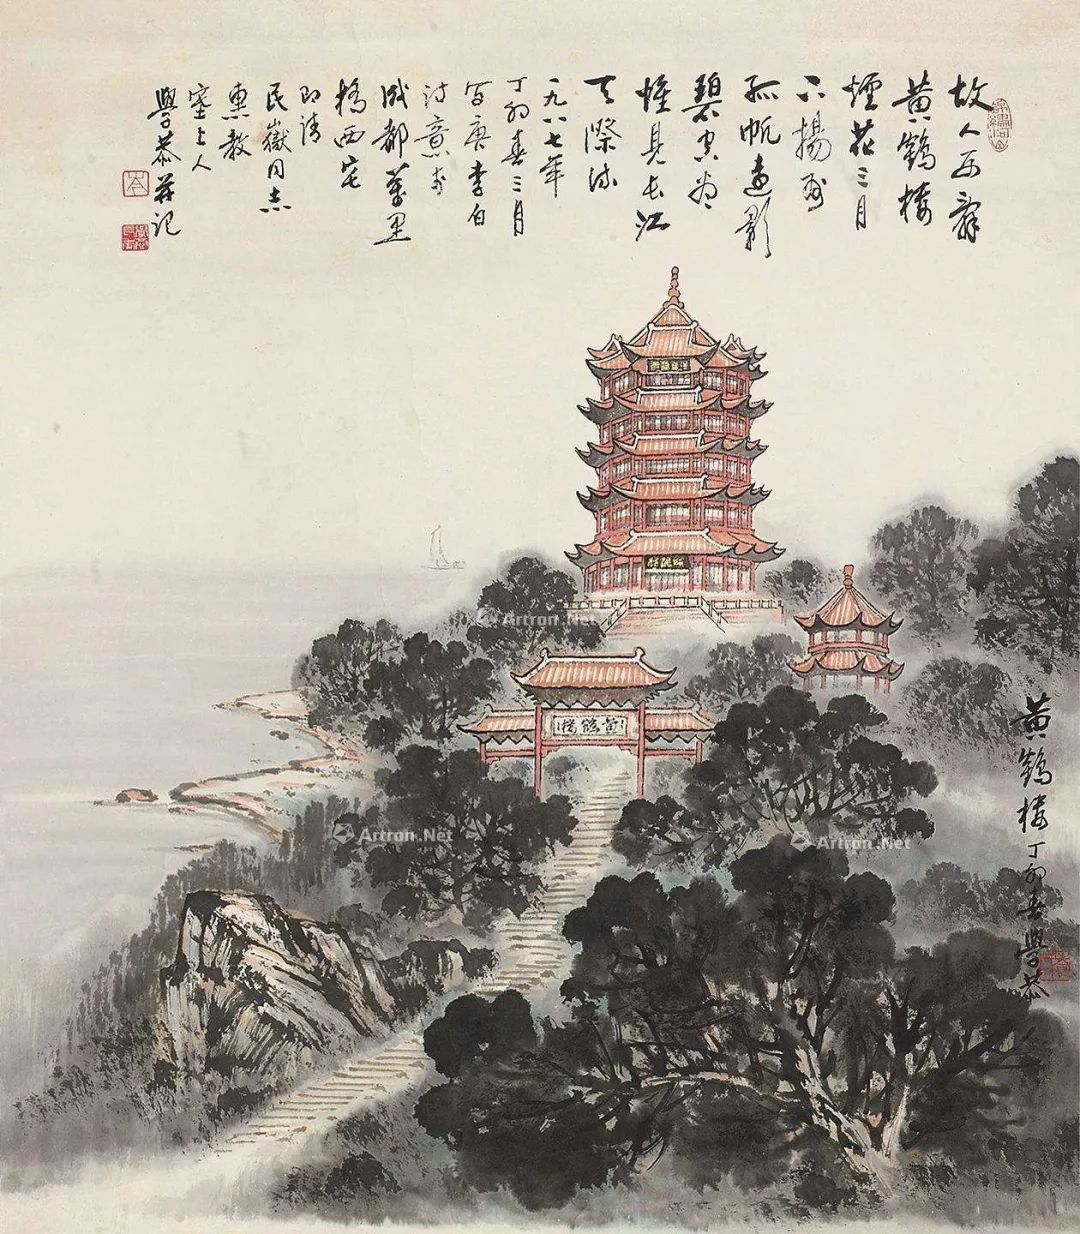 故人西辞
黄鹤楼
煙花三月
下揚州
孤帆遠影
碧空尽
惟見长江
天際流
一九八七年
丁卯春三月
写唐李白
诗意於
成都萬里
橋西宅
即请
民嶽同志
惠教
塞上人
學恭并记
黄鶴樓
黄鶴楼丁卯春學恭
Artron.Net
Artron.Net
Artron.Net